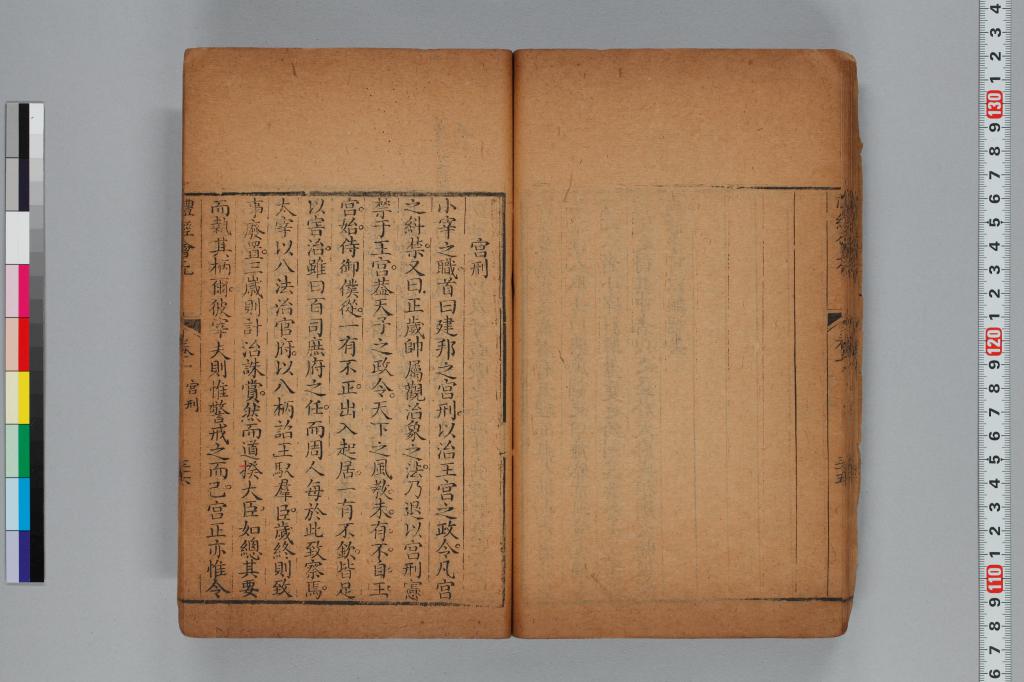 宮刑
小宰之職首曰建邦之宮刑以治王宮之政令凡宮
之糾禁又曰正歲帥屬觀治象之法乃退以宮刑憲
禁于王宮葢天子之政令天下之風教未有不自王
宮始侍御僕從一有不正出入起居一有不欽皆足
以害治雖曰百司庶府之任而周人每於此致察焉
太宰以八法治官府以八柄詔王馭羣臣歲終則致
事廢置三歲則計治誅賞然而道揆大臣如總其要
而執其柄爾彼宰夫則惟警戒之而已宮正亦惟令
禮經會元
卷一
宮刑
三十六